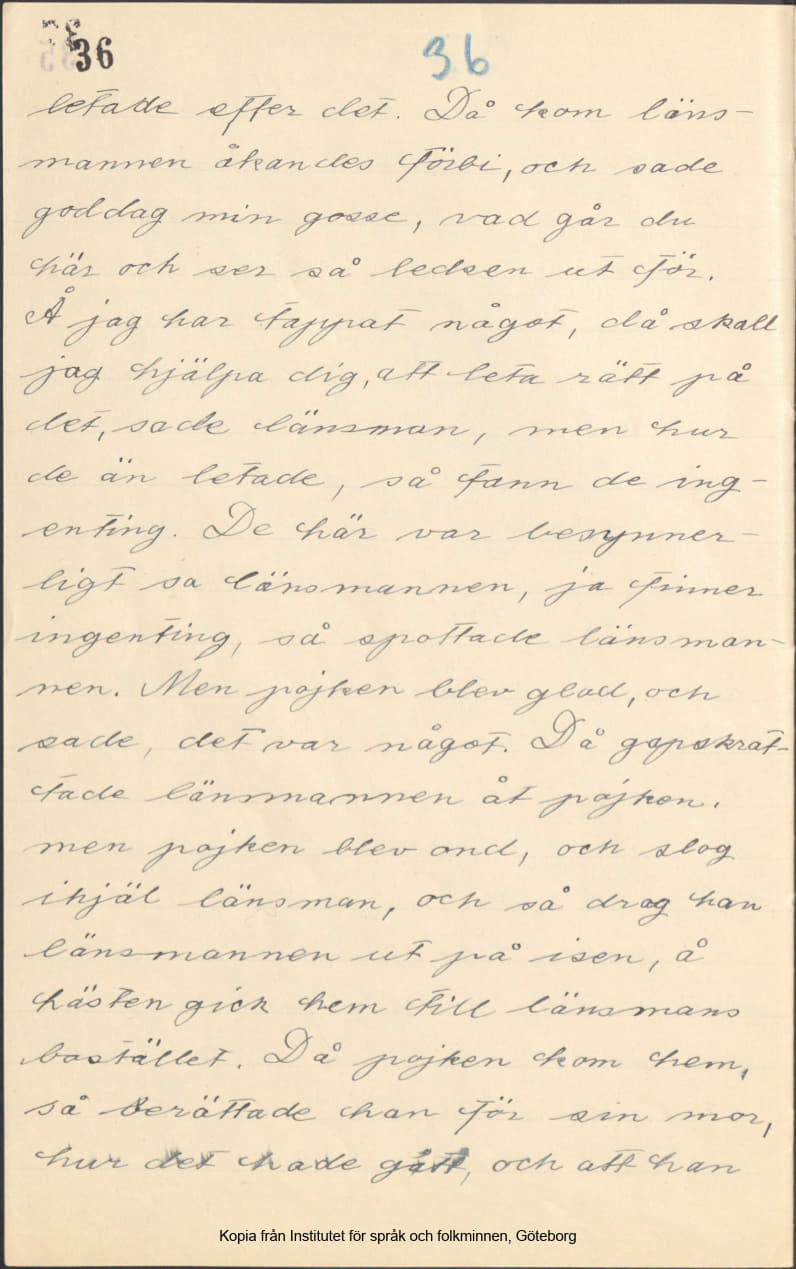 36
36
letade efter det. Då kom läns-
mannen åkandes förbi, och sade
god dag min gosse, vad går du
här och ser så ledsen ut för.
Å jag har tappat något, då skall
jag hjälpa dig, att leta rätt på
det, sade länsman, men hur
de än letade, så fann de ing-
enting. De här var besynner-
ligt sa länsmannen, ja finner
ingenting, så spottade länsman-
nen. Men pojken blev glad, och
sade, det var något. Då gapskrat-
tade länsmannen åt pojken.
men pojken blev ond, och slog
ihjäl länsman, och så drog han
länsmannen ut på isen, å
hästen gick hem till länsmans
bostället. Då pojken kom hem,
så berättade han för sin mor,
hur det hade gått, och att han
Kopia från Institutet för språk och folkminnen, Göteborg